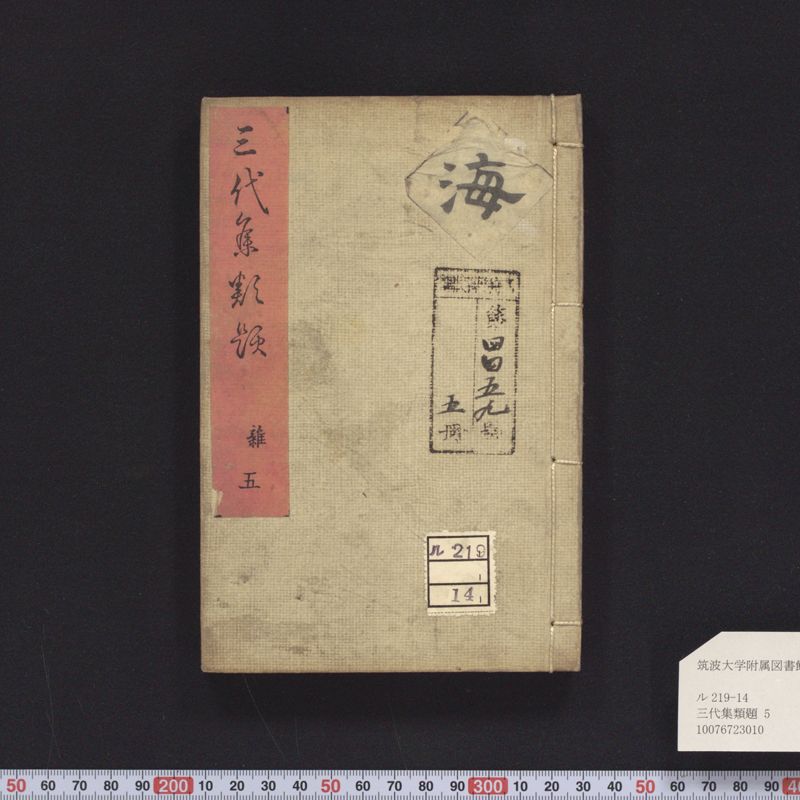 三代集類題
雜五
海
第四四五九號
五冊
ル 219
14
筑波大学附属図書館
ル 219-14
三代集類題 5
10076723010
50 60 70 80 90 200 10 20 30 40 50 60 70 80 90 300 10 20 30 40 50 60 70 80 90